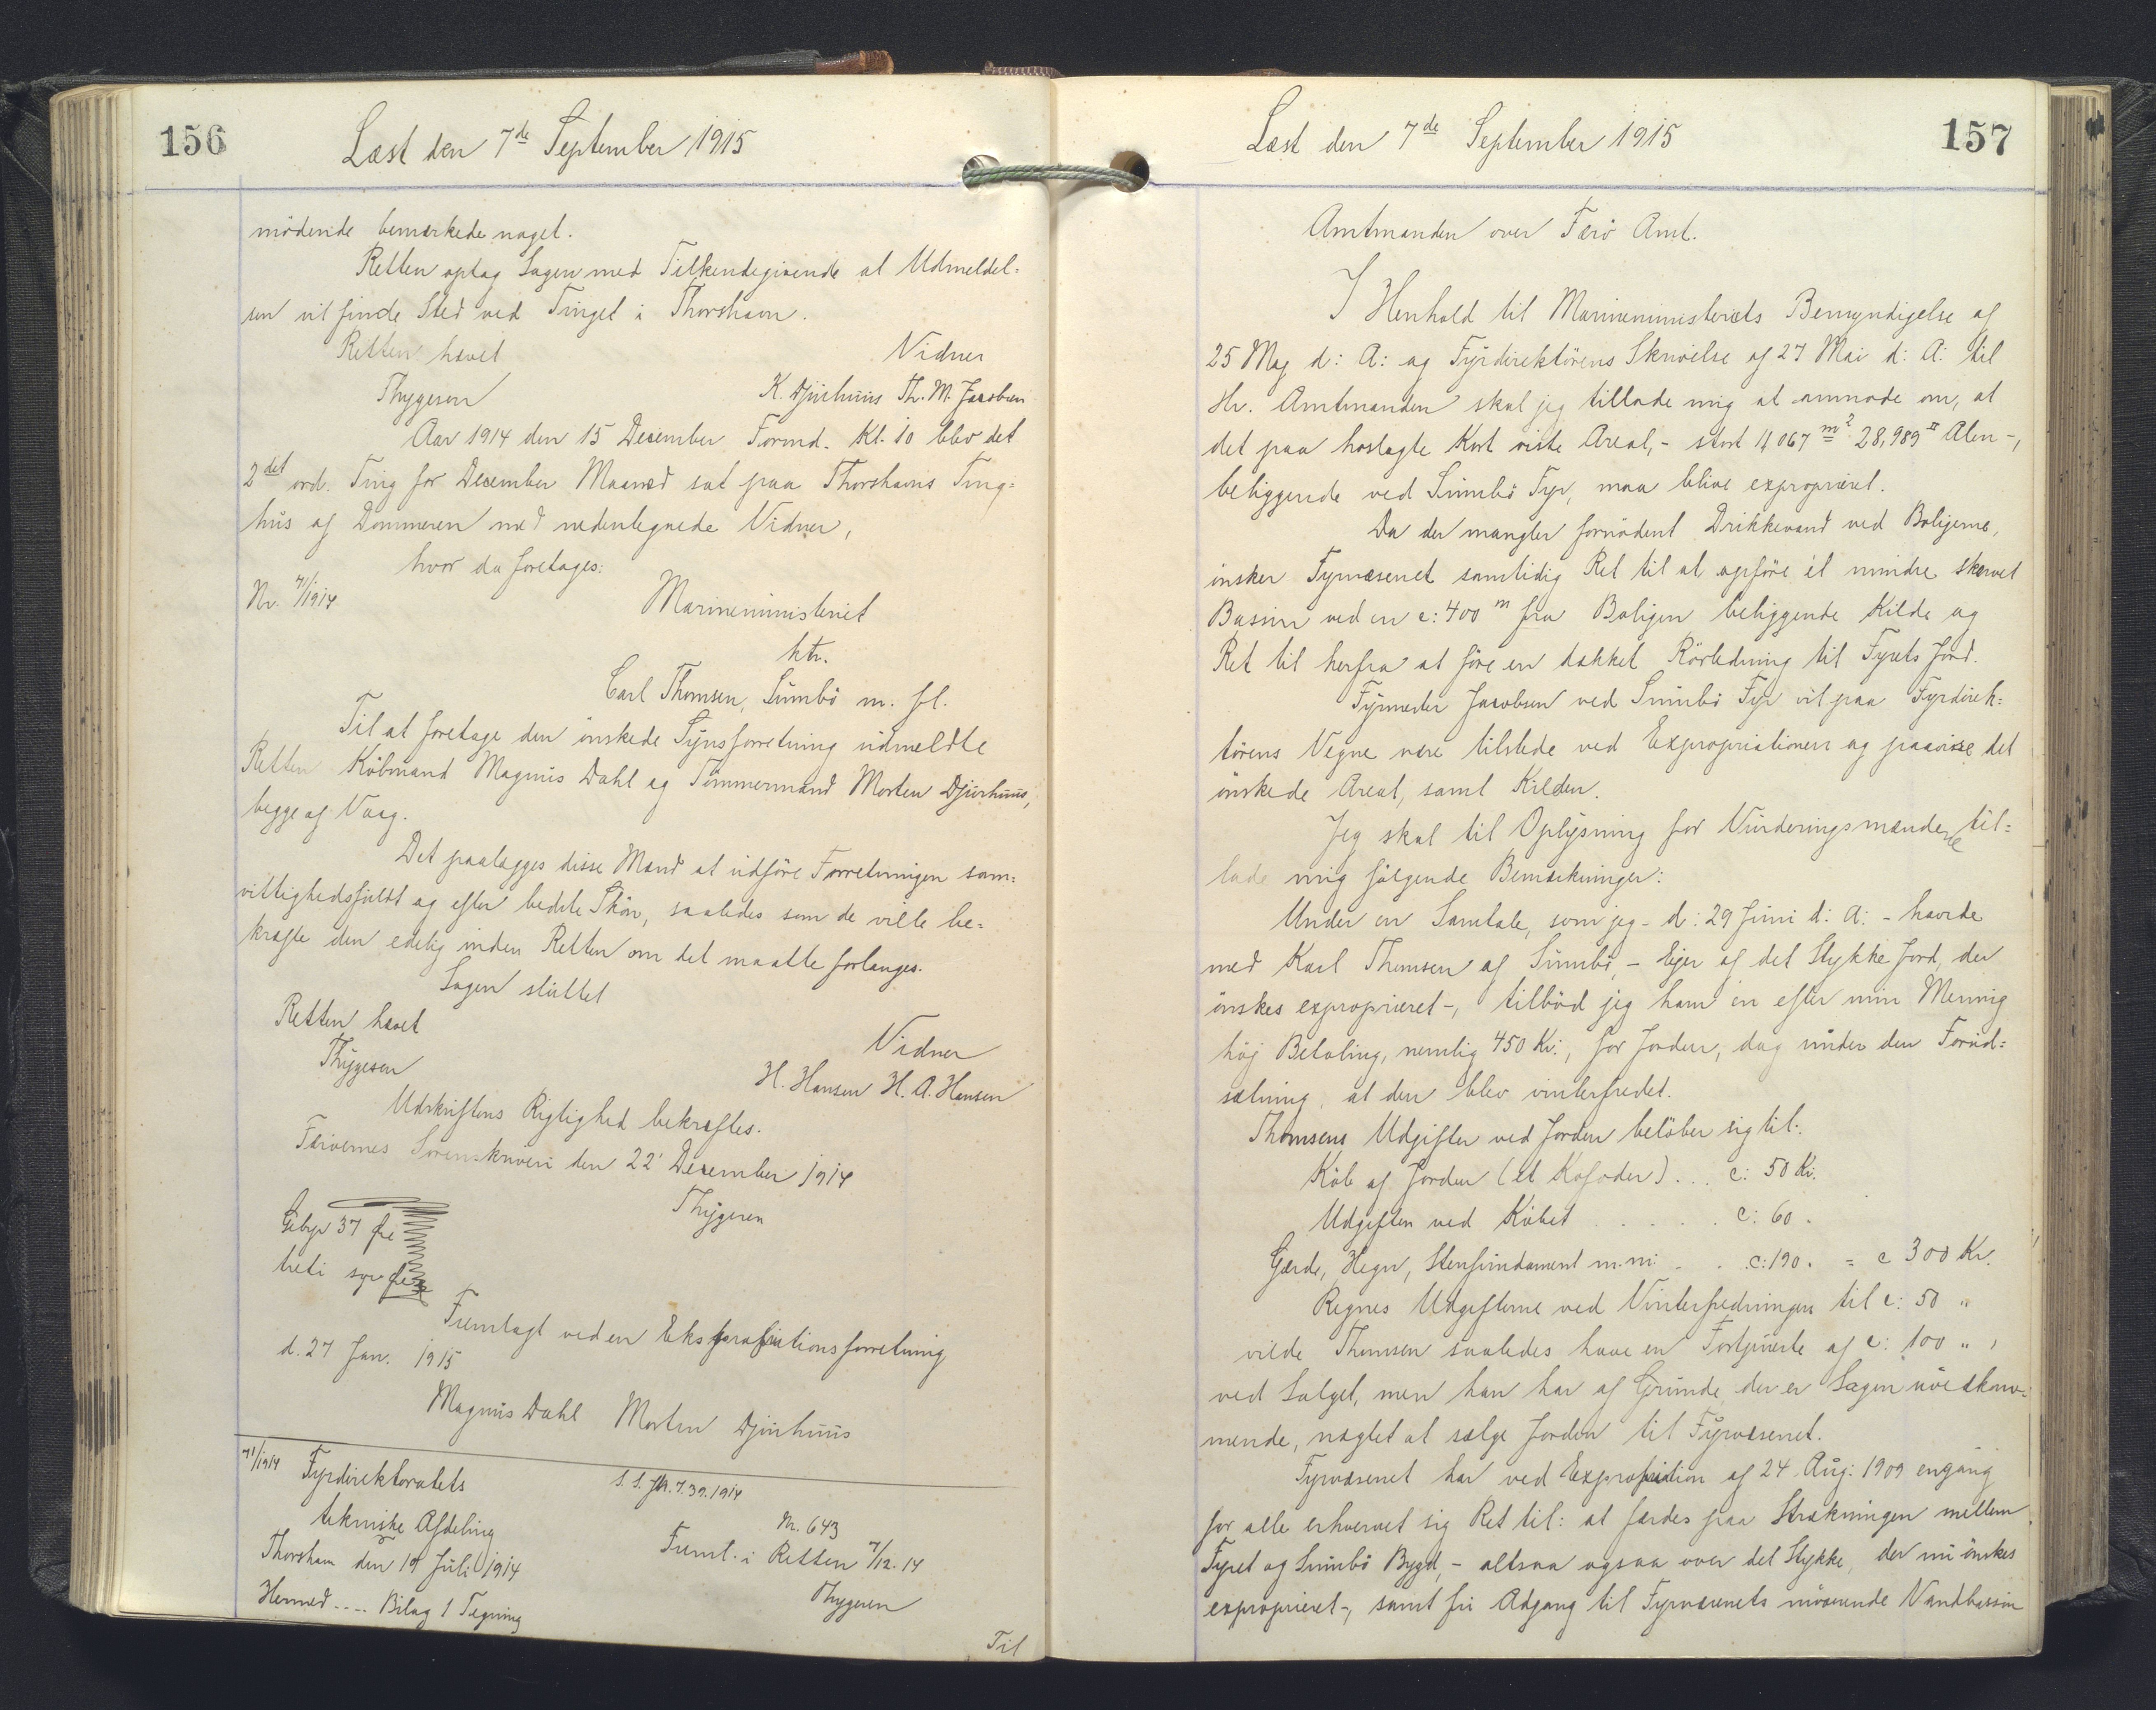 156
Læst den 7de September 1915
mödende bemærkede noget.
Retten optog Sagen med Tilkendegivende at Udmeldel=
sen vil finde Sted ved Tinget i Thorshavn.
Retten hævet
Vidner
Thygesen
K. Djurhuus Th. M. Jacobsen
Aar 1914 den 15 December Formd. Kl. 10 blev det
2det ord. Ting for December Maaned sat paa Thorshavns Ting=
hus af Dommeren med nedentegnede Vidner,
hvor da foretages:
Nr. 71/1914
Marineministeriet
ktr.
Carl Thomsen, Sumbö m. fl.
Til at foretage den önskede Synsforretning udmeldte
Retten Köbmand Magnus Dahl og Tömmermand Morten Djurhuus,
begge af Vaag.
Det paalægges disse Mænd at udföre Forretningen sam=
vittighedsfuldt og efter bedste Skön, saaledes som de ville be=
kræfte den edelig inden Retten om det maatte forlanges.
Sagen sluttet
Retten hævet
Vidner
Thygesen
H. Hansen H. A. Hansen
Udskriftens Rigtighed bekræftes.
Færöernes Sorenskriveri den 22' December 1914
Thygesen
Gebyr 37 fri
treti syv fri
Fremlagt ved en Ekspropriationsforretning
d. 27 Jan. 1915
Magnus Dahl Morten Djurhuus
71/1914 Fyrdirektoratets
S. S. Jk. 7.39.1914
tekniske Afdeling
Nr. 643
Thorshavn den 19 Juli 1914
Freml. i Retten 7/12.14
Hermed .... Bilag 1 Tegning
Thygesen
Til
157
Læst den 7de September 1915
Amtmanden over Færö Amt.
I Henhold til Marineministeriets Bemyndigelse af
25 Maj d: A: og Fyrdirektörens Skrivelse af 27 Mai d: A: til
Hr. Amtmanden skal jeg tillade mig at anmode om, at
det paa hoslagte Kort viste Areal, - stort 11,067 m2 28,989 □ Alen -,
beliggende ved Sumbö Fyr, maa blive exproprieret.
Da der mangler fornödent Drikkevand ved Boligerne,
önsker Fyrvæsenet samtidig Ret til at opföre et mindre skærvet
Bassin ved en c: 400 m fra Boligen beliggende Kilde og
Ret til herfra at före en dækket Rörledning til Fyrets Jord.
Fyrmester Jacobsen ved Sumbö Fyr vil paa Fyrdirek=
törens Vegne være tilstede ved Expropriationen og paavise det
önskede Areal, samt Kilden.
Jeg skal til Oplysning for Vurderingsmændene til=
lade mig fölgende Bemærkninger:
Under en Samtale, som jeg - d: 29 Juni d: A: - havde
med Karl Thomsen af Sumbö, - Ejer af det Stykke Jord, der
önskes exproprieret -, tilböd jeg ham en efter min Mening
höj Betaling, nemlig 450 Kr:, for Jorden, dog under den Forud=
sætning, at den blev vinterfredet.
Thomsens Udgifter ved Jorden belöber sig til:
Köb af Jorden (et Kofoder) . . . c: 50 Kr.
Udgiften ved Köbet . . . . . c: 60 .
Gærde, Hegn, Stenfundament m. m. . . c: 190 . = c 300 Kr.
Regnes Udgifterne ved Vinterfredningen til c: 50 "
vilde Thomsen saaledes have en Fortjeneste af c: 100 " ,
ved Salget, men han har af Grunde, der er Sagen uvedkom=
mende, nægtet at sælge Jorden til Fyrvæsenet.
Fyrvæsenet har ved Expropriation af 24 Aug: 1909 engang
for alle erhvervet sig Ret til: at færdes paa Strækningen mellem
Fyret og Sumbö Bygd, - altsaa ogsaa over det Stykke, der nu önskes
exproprieret -, samt fri Adgang til Fyrvæsenets nuværende Vandbassin